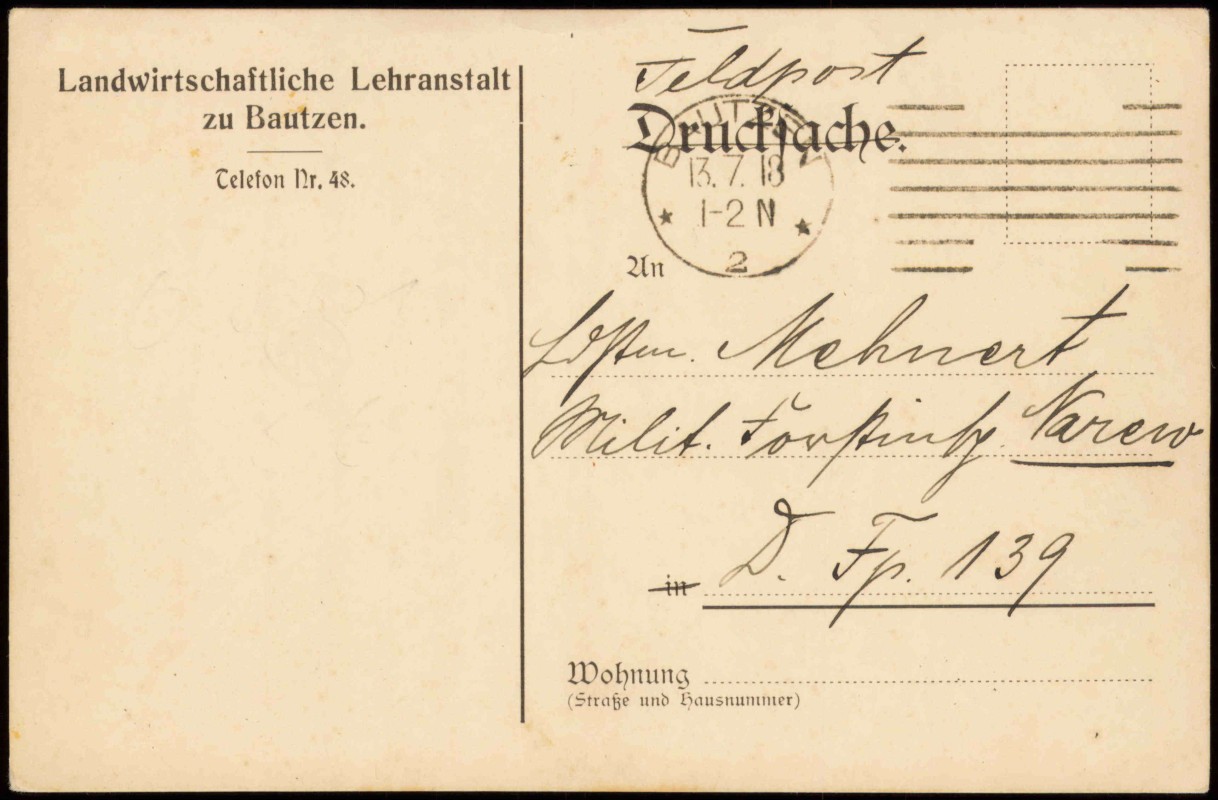 Landwirtschaftliche Lehranstalt
zu Bautzen.
Telefon Nr. 48.
Feldpost
Drucksache.
BAUTZEN
13. 7. 18
1-2 N
2
An
Ldstm. Mehnert
Milit. Forstinsp. Narew
in D. Fp. 139
Wohnung
(Straße und Hausnummer)